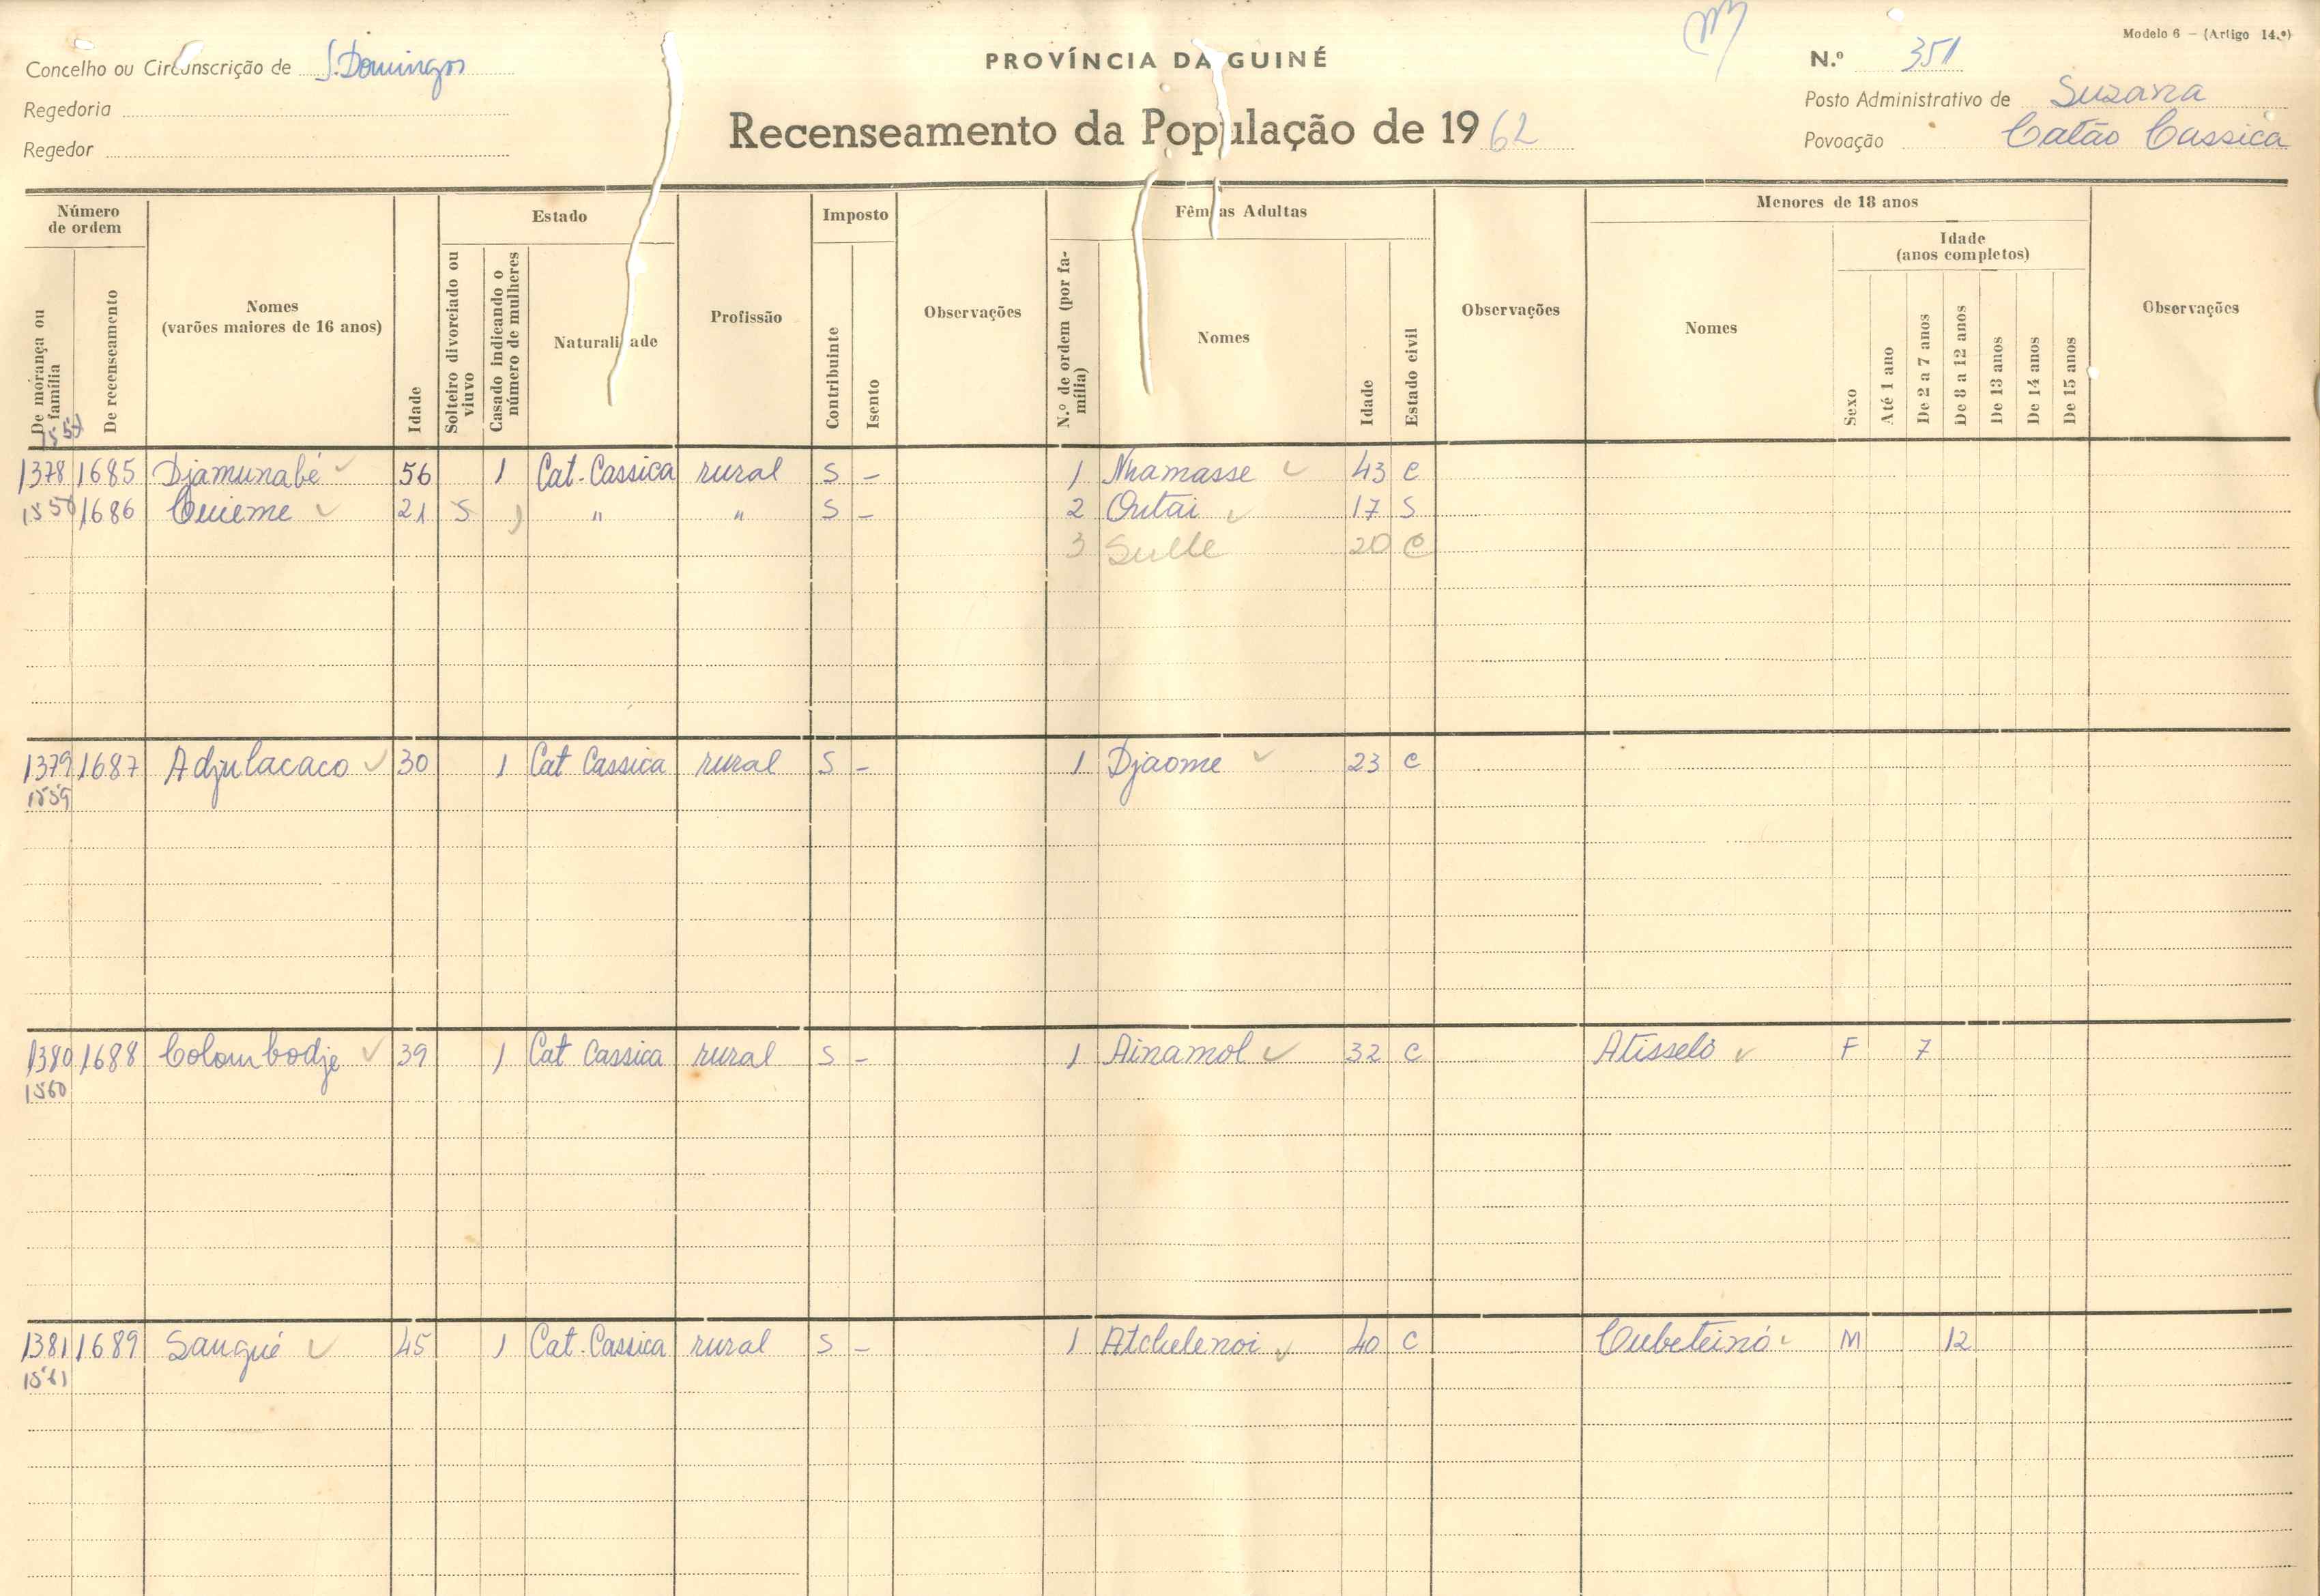 Modelo 6 — (Artigo 14.º)
Concelho ou Circunscrição de S. Domingos
PROVÍNCIA DA GUINÉ
N.º 351
Regedoria
Posto Administrativo de Suzana
Regedor
Recenseamento da População de 1962
Povoação Catão Cassica
Número de ordem
De morança ou família
De recenseamento
Nomes (varões maiores de 16 anos)
Idade
Estado
Solteiro divorciado ou viuvo
Casado indicando o número de mulheres
Naturalidade
Profissão
Imposto
Contribuinte
Isento
Observações
Fêmeas Adultas
N.º de ordem (por família)
Nomes
Idade
Estado civil
Observações
Menores de 18 anos
Nomes
Sexo
Idade (anos completos)
Até 1 ano
De 2 a 7 anos
De 8 a 12 anos
De 13 anos
De 14 anos
De 15 anos
Observações
1378 1685 Djamunabé 56 1 Cat. Cassica rural S – 1 Nhamasse 43 C
1686 21 S ) " " S – 2 Outai 17 S
3 Sulle 20 C
1379 1687 Adjulacaco 30 1 Cat Cassica rural S – 1 Djaome 23 C
1559
1380 1688 Colombodje 39 1 Cat Cassica rural S – 1 Ainamol 32 C Atisseló F 7
1560
1381 1689 Sangué 45 1 Cat. Cassica rural S – 1 Atchelenoi 40 C Cubeteinó M 12
1561